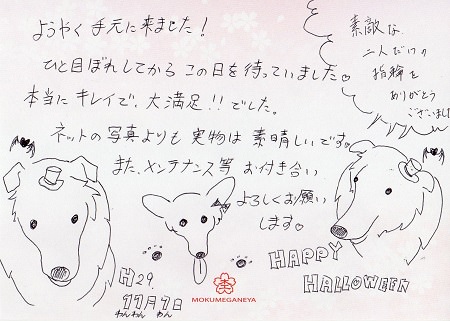 ようやく 手元に来ました！
ひと目ぼれしてから この日を待っていました。
本当に キレイで、大満足!! でした。
ネットの写真よりも 実物は 素晴しいです。
また、メンテナンス等 お付き合い
よろしくお願い
します。
素敵な
二人だけの
指輪を
ありがとう
ございました
H29.
11月1日
わんわん わん
HAPPY
HALLOWEEN
MOKUMEGANEYA